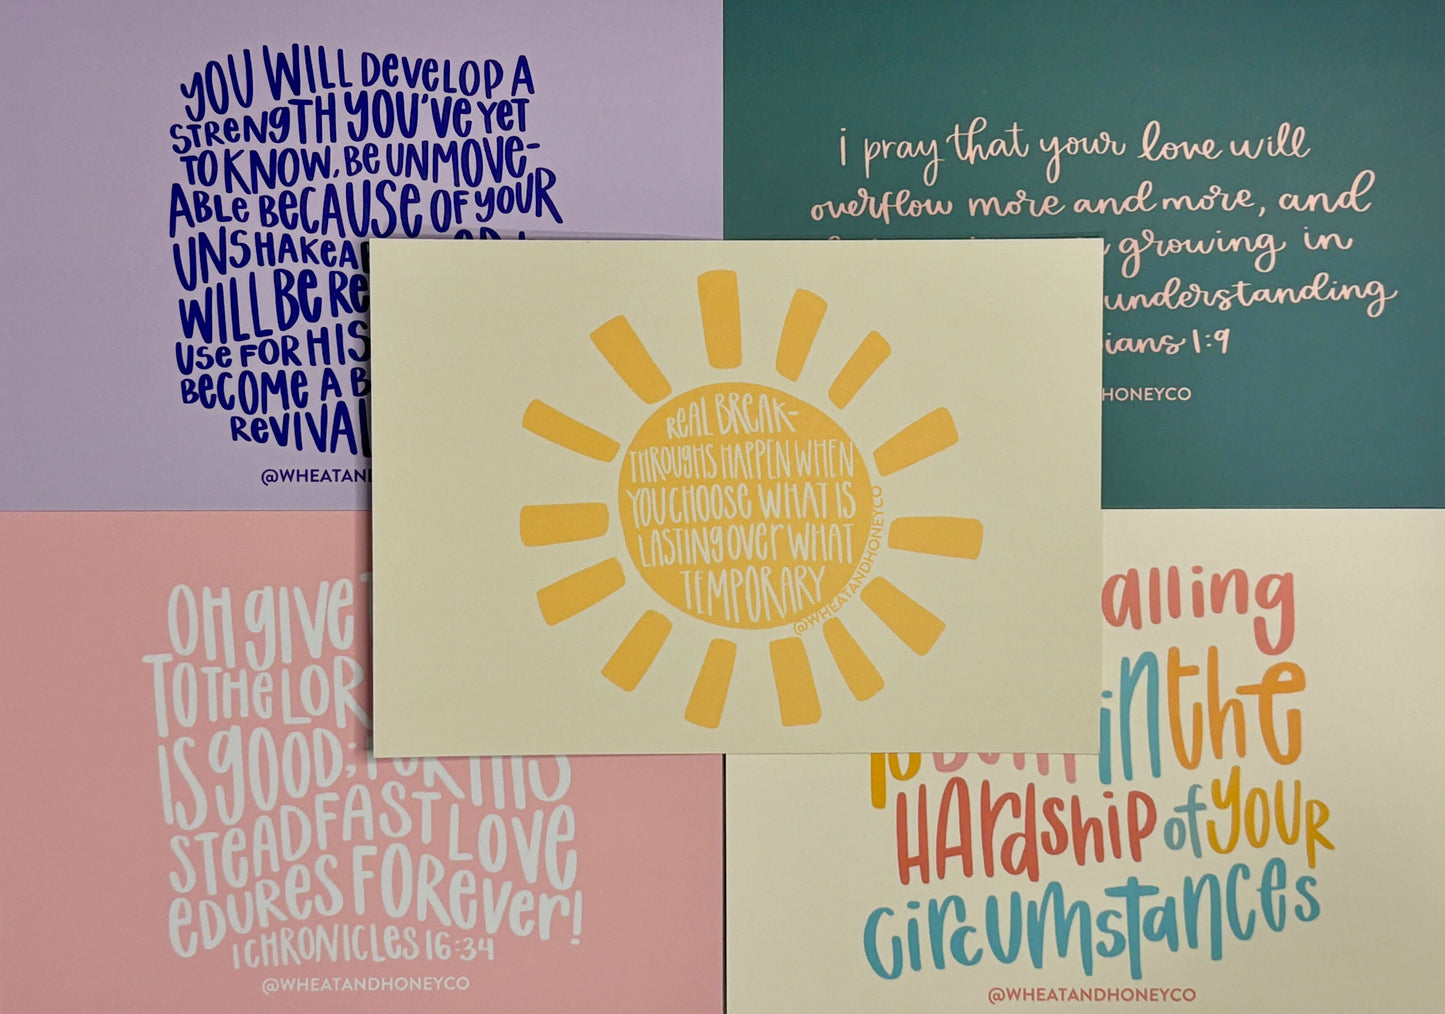 YOU WILL DEVELOP A
STRENGTH YOU'VE YET
TO KNOW. BE UNMOVE-
ABLE BECAUSE OF YOUR
WILL BE
USE FOR HIS
BECOME A
@WHEATAND
i pray that your love will
overflow more and more, and
growing in
understanding
ians 1:9
HONEYCO
REAL BREAK-
THROUGHS HAPPEN WHEN
YOU CHOOSE WHAT IS
LASTING OVER WHAT
TEMPORARY
@WHEATANDHONEYCO
OH GIVE
TO THE LOR
IS GOOD; FOR HIS
STEADFAST LOVE
EDURES FOREVER!
1 CHRONICLES 16:34
@WHEATANDHONEYCO
alling
in the
HARDSHIP of YOUR
CIRCUMSTANCES
@WHEATANDHONEYCO